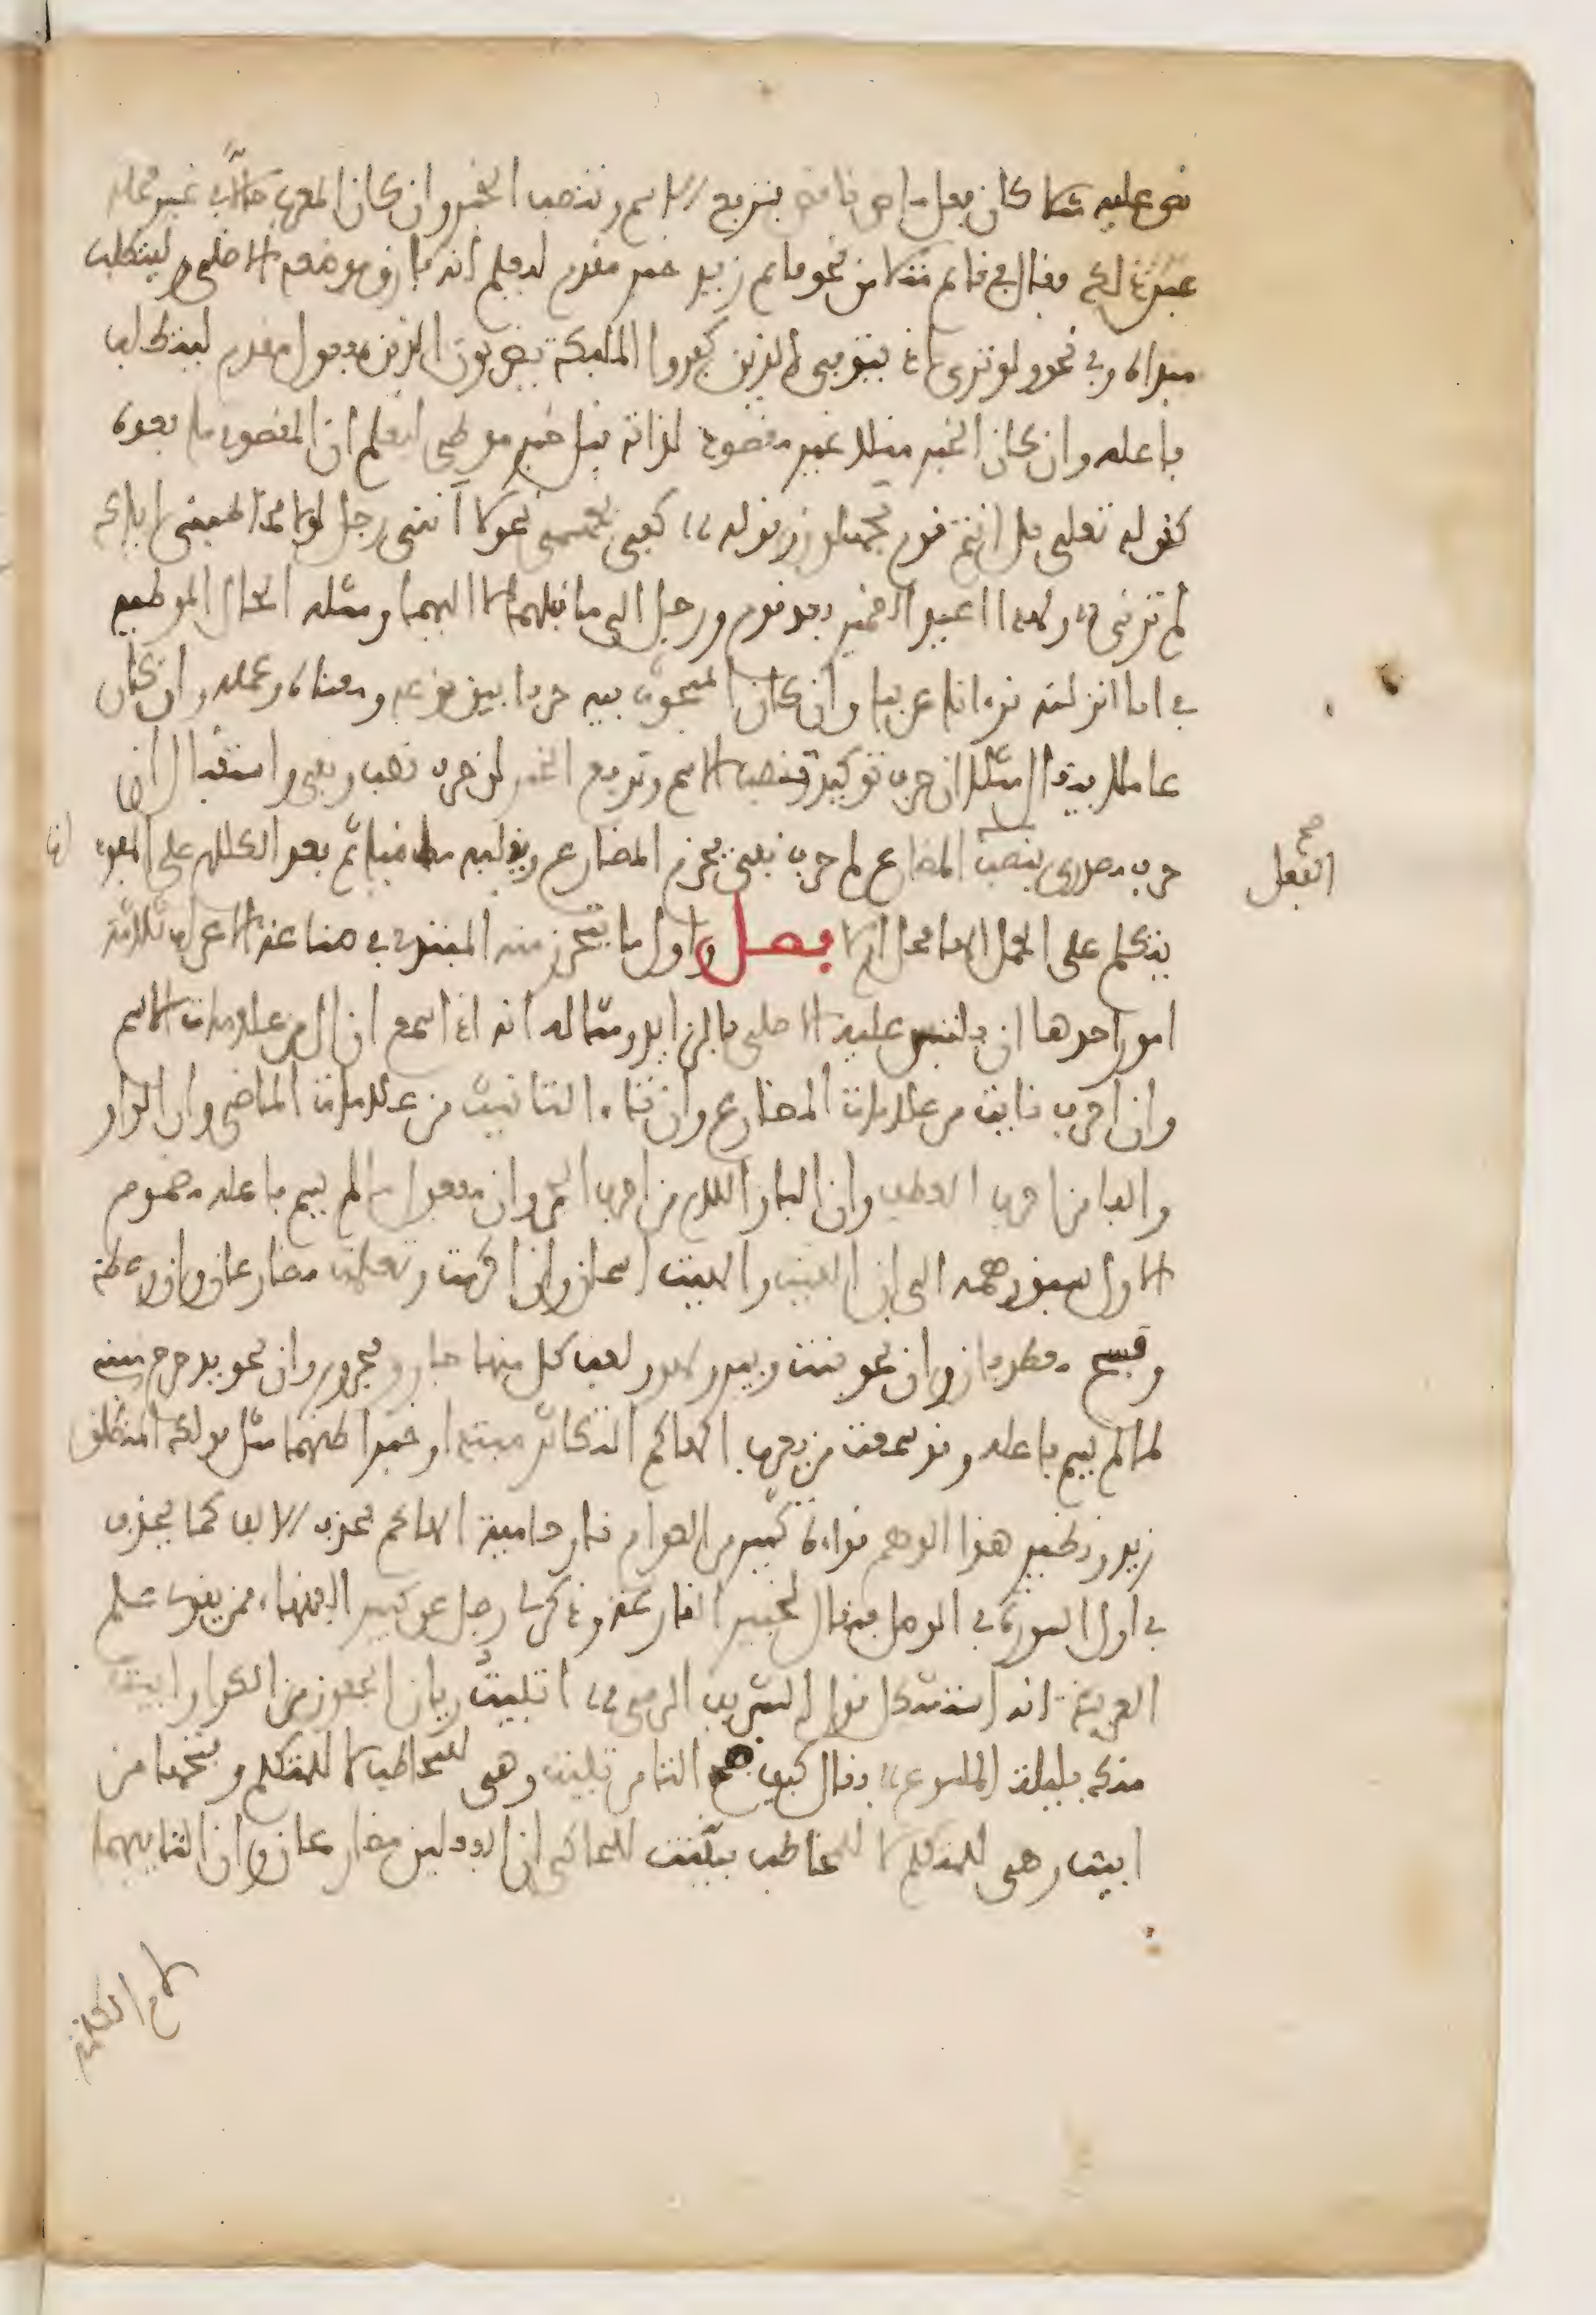 نوع عليه مثلا كان فعل ماض ناقص يرفع الاسم وينصب الخبر وان كان المعرب حالا في غير محله
عين ذلك فيقال في قائم مثلا من نحو قائم زيد خبر مقدم ليعلم انه فارق موضعه الاصلي وليتطلب
مبتداه وفي نحو ولو ترى اذ يتوفى الذين كفروا المليكة يضربون الذين مفعول مقدم ليتطلب
فاعله وان كان الخبر مثلا غير مقصود لذاته قيل خبر موطئ ليعلم ان المقصود ما بعده
كقوله تعلى بل انتم قوم تجهلون وقوله كفى بجسمي نحولا أنني رجل لولا مخاطبتي اياك
لم ترني ولهذا اعيد الضمير بعد قوم ورجل الى ما قبلهما لا اليهما ومثله الحال الموطية
في انا انزلنه قرءانا عربيا وان كان المبحوث فيه حرفا بين نوعه ومعناه وعمله وان كان
عاملا فيقال مثلا ان حرف توكيد تنصب الاسم وترفع الخبر لن حرف نصب ونفي واستقبال ان
حرف مصدري ينصب المضارع لم حرف نفي يجزم المضارع ويقلبه ماضيا ثم بعد الكلام على المفرد ات
صح
الفعل
يتكلم على الجمل الها محل ام لا فصل واول ما يتحرز منه المبتدئ في صناعة الاعراب ثلاثة
امور احدها ان يلتبس عليه الاصلي بالزايد ومثاله انه اذا سمع ان ال من علامات الاسم
وان احرف نايت من علامات المضارع وان تاء التانيث من علامات الماضي وان الواو
والفا من احرف العطف وان البا واللام من احرف الجر وان مفعول ما لم يسم فاعله مضموم
الاول سبق وهمه الى ان الفيت والهبت اسمان وان اكرمت وتعلمت مضارعان وان وعظ
وفسخ معطوفان وان نحو بيت وبين ولهو ولعب كل منها جار ومجرور وان نحو يدحرج مبني
لما لم يسم فاعله وقد سمعت من يعرب الهاكم التكاثر مبتدا وخبرا ظنهما مثل قولك المنطلق
زيد ونظير هذا الوهم قراءة كثير من العوام نار حامية الهاكم بحذف الالف كما يحذف
في اول السورة في الوصل فيقال لخبير القارعة وذكر لي رجل عن كبير الفقهاء ممن يقرئ علم
العربية انه استشكل قول الشريف الرضي اتبيت ريان الجفون من الكرا وابيت
منك بليلة الملسوع وقال كيف ضم التا من تبيت وهي للمخاطب لا للمتكلم وفتحها من
ابيت وهي للمتكلم لا للمخاطب فبينت للحاكي ان الفعلين مضارعان وان التا فيهما
لام الكلمة